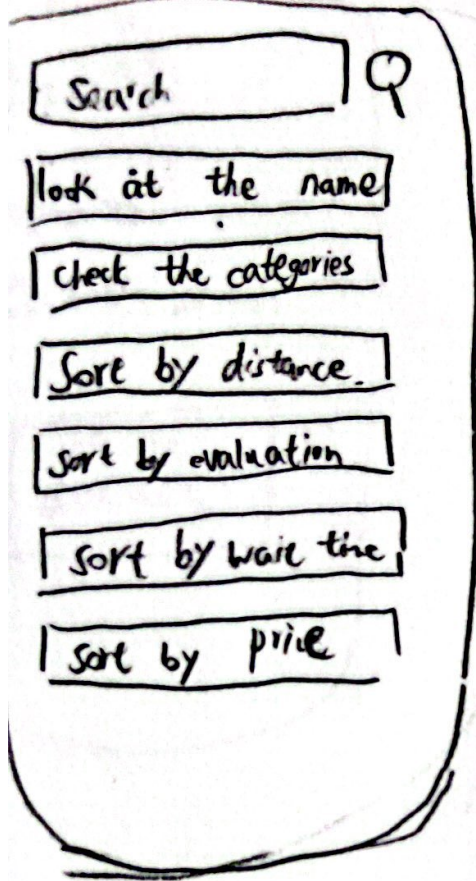 Search
look at the name
check the categories
Sort by distance.
sort by evaluation
sort by wait time
sort by price